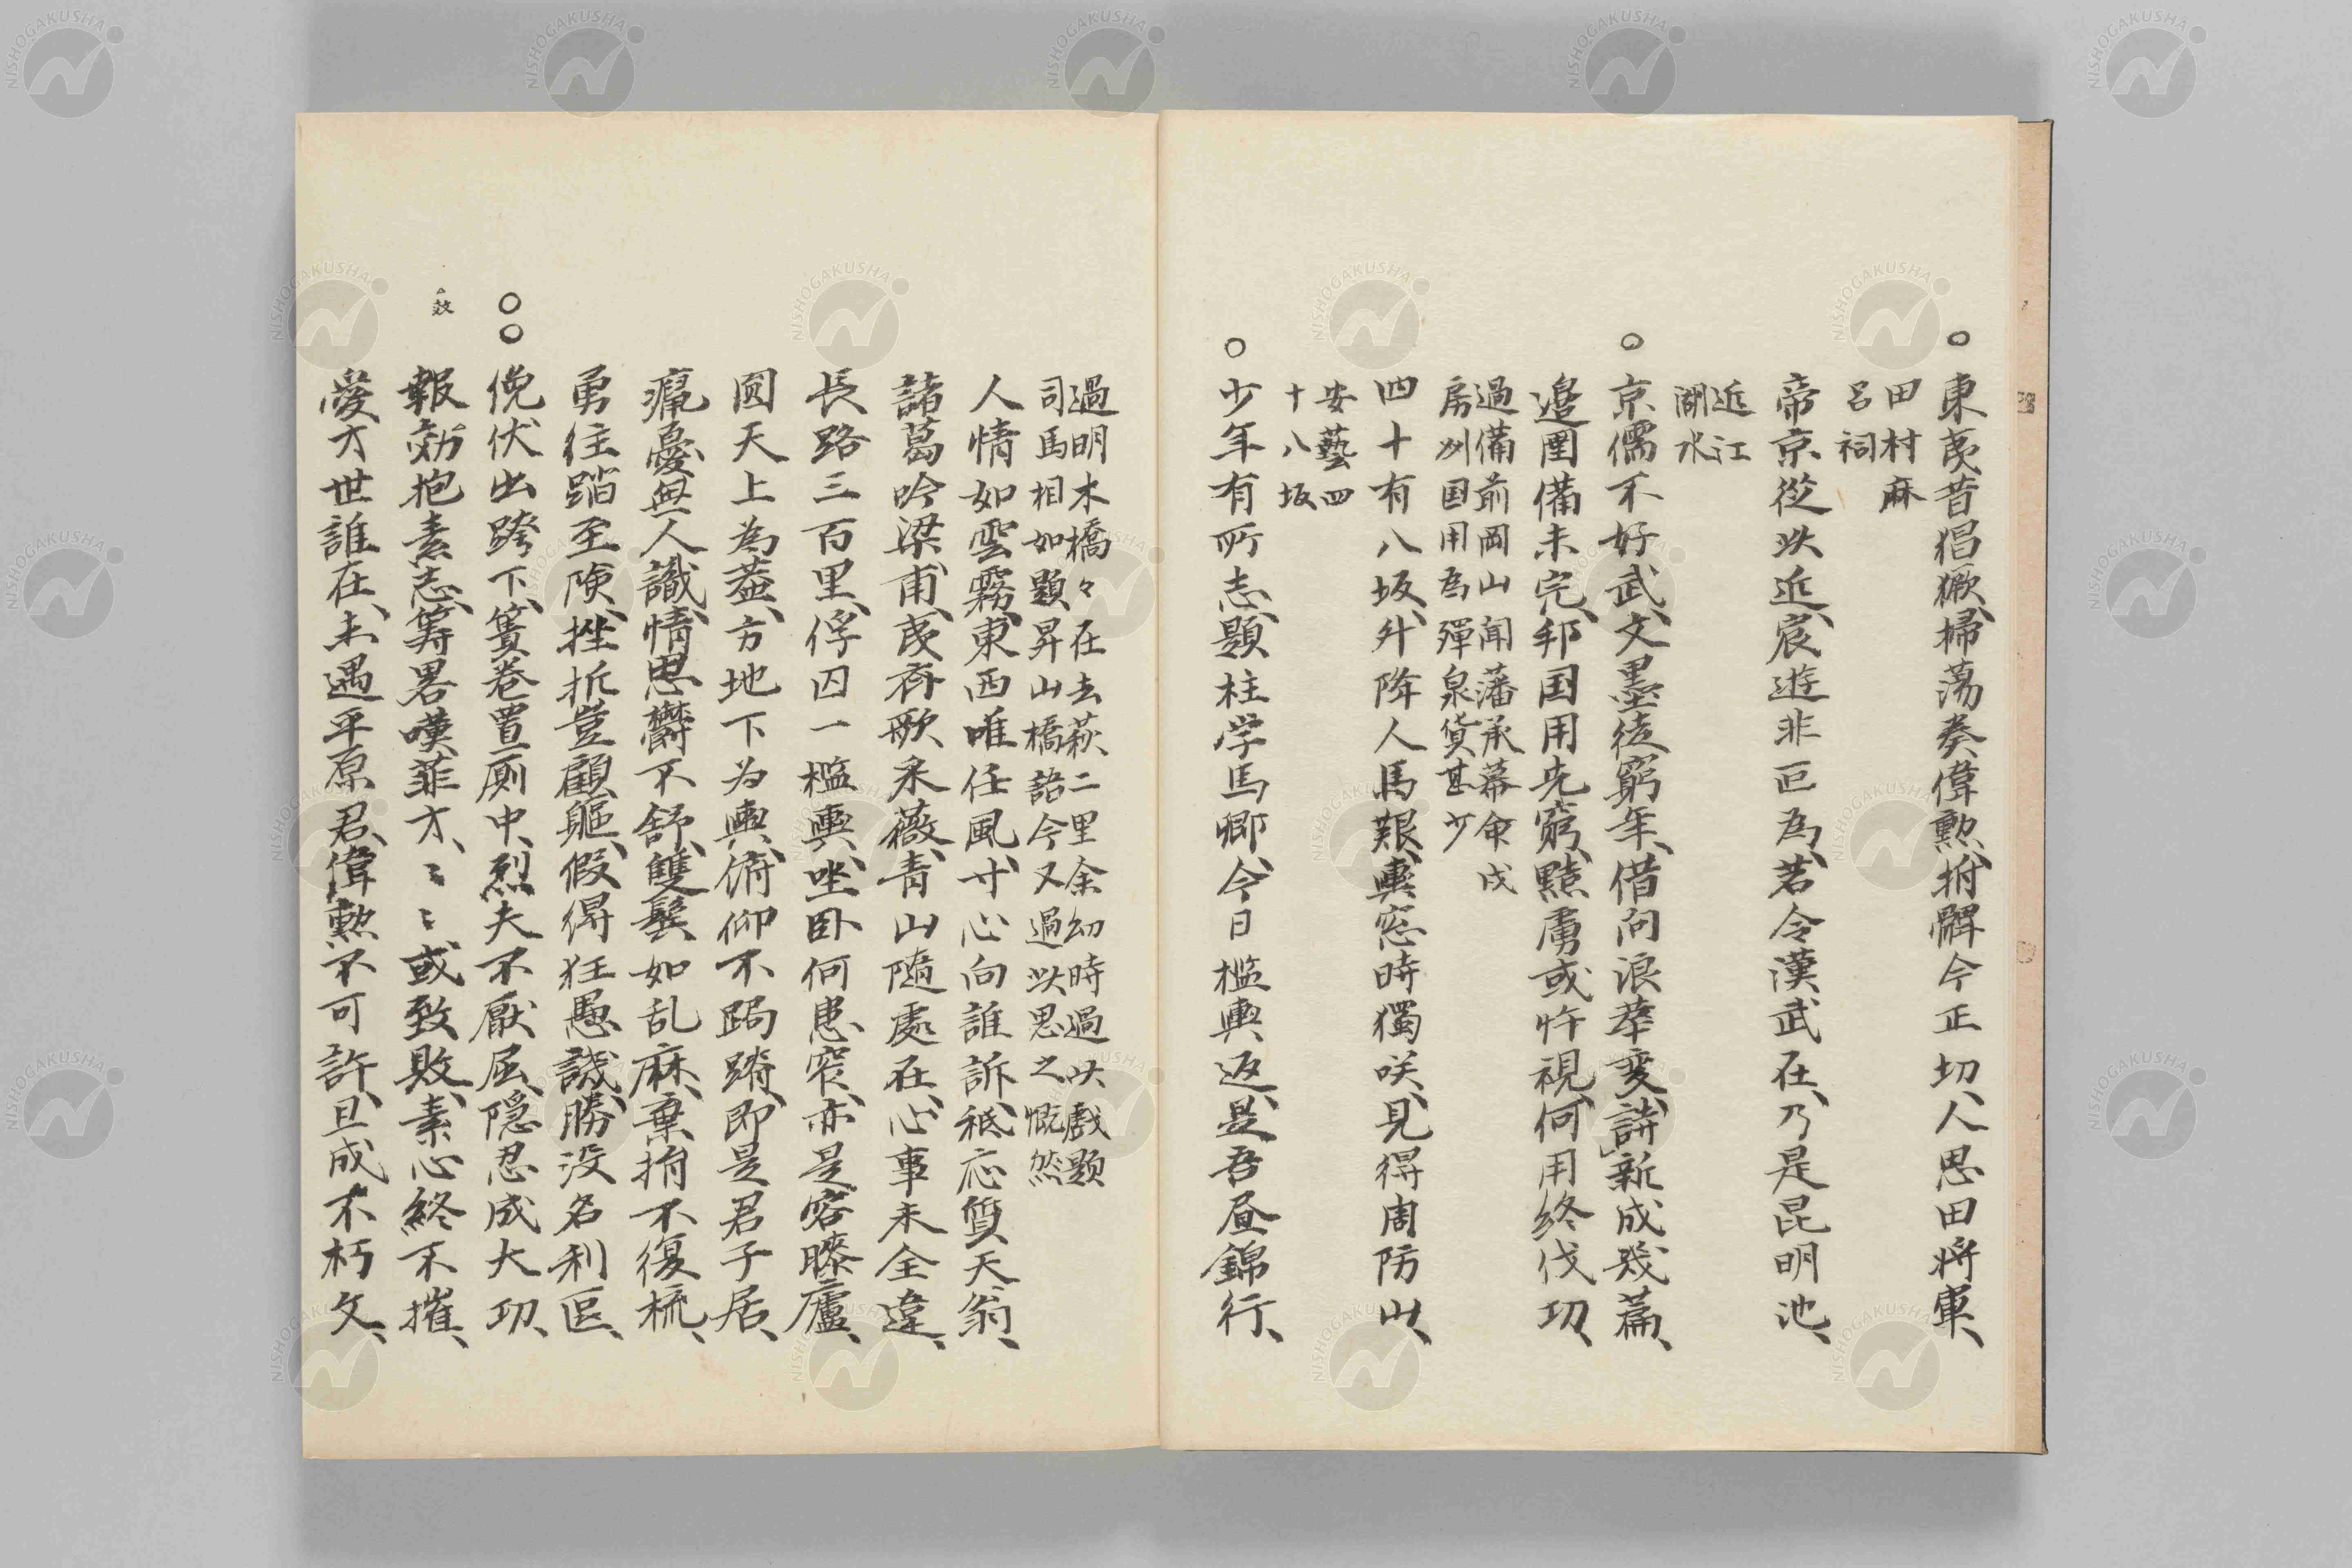 ○東夷昔猖獗、掃蕩奏偉勲、拊髀今正切、人思田将軍、
田村麻
呂祠
帝京従此近、宸遊非叵為、若令漢武在、乃是昆明池、
近江
湖水
○京儒不好武、文墨徒窮年、借向浪華変、詩新成幾篇、
邉圉備未完、邦国用先窮、黠虜或忤視、何用終伐功、
過備前岡山聞藩承幕命戍
房州国用為殫泉貨甚少
四十有八坂、升降人馬艱、輿窓時獨咲、見得周防山、
安藝四
十八坂
○少年有所志、題柱学馬卿、今日檻輿返、是吾昼錦行、
過明木橋々在去萩二里余幼時過此戲題
司馬相如題昇山橋語今又過此思之慨然
人情如雲霧、東西唯任風、寸心向誰訴、秪応質天翁、
諸葛吟梁甫、夷斉歌采薇、青山随處在、心事未全違、
長路三百里、俘囚一檻輿、坐卧何患窄、亦是容膝廬、
圓天上為蓋、方地下为輿、俯仰不跼蹐、即是君子居、
癙憂無人識、情思欝不舒、雙鬓如乱麻、棄捐不復梳、
勇往踏至険、挫折豈顧軀、假得狂愚誠、勝没名利区、
○○俛伏出跨下、簀巻置厠中、烈夫不厭屈、隠忍成大功、
效
報効抱素志、籌畧嘆菲才、〻〻或致敗、素心終不摧、
愛才世誰在、未遇平原君、偉勲不可許、且成不朽文、